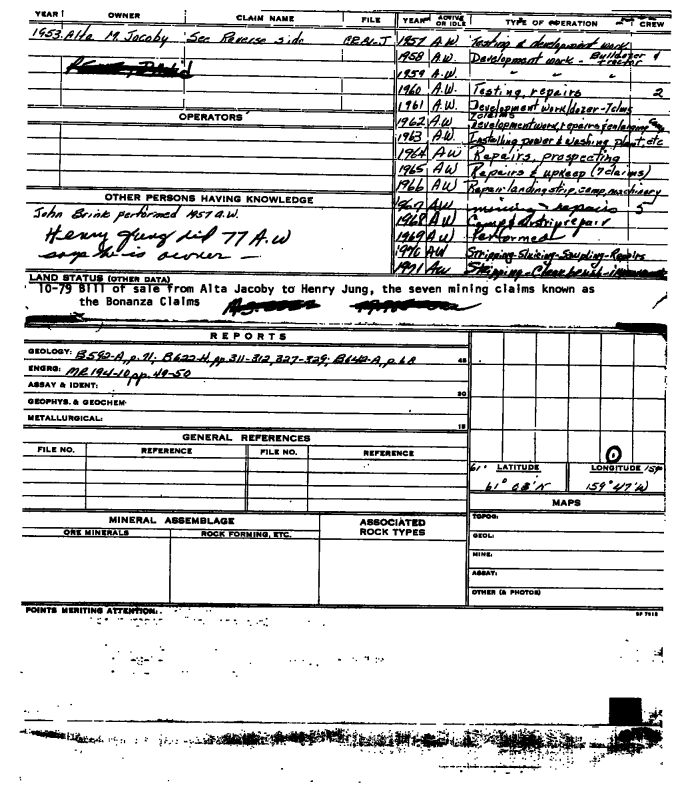 YEAR OWNER CLAIM NAME FILE YEAR ACTIVE OR IDLE TYPE OF OPERATION CREW
1953 Alta M. Jacoby See Reverse side 1957 A.W. Testing & development work
1958 A.W. Development work - Bulldozer & tractor
1959 A.W. " "
1960 A.W. Testing, repairs 2
1961 A.W. Development work/dozer-7clms
OPERATORS
7claims
1962 A.W. Development work, repairs, enlarging
1963 A.W. Installing power & washing plant, etc
1964 A.W Repairs, prospecting
1965 AW Repairs & upkeep (7claims)
1966 AW Repair landing strip, camp, machinery
OTHER PERSONS HAVING KNOWLEDGE
1967 AW mining - repairs 5
John Brink performed 1957 A.W.
1968 AW Camp & strip repair
Henry Jung did 77 A.W
1969 AW Performed
says he is owner -
1970 AW Stripping-Sluicing-Sampling-Repairs
1971 AW Stripping-
LAND STATUS (OTHER DATA)
10-79 Bill of sale from Alta Jacoby to Henry Jung, the seven mining claims known as
the Bonanza Claims
REPORTS
GEOLOGY: B592-A, p. 71; B622-H, pp 311-312, 327-329; B642-A, p. 68 45
ENGRG: MR 194-10, pp. 49-50
ASSAY & IDENT:
30
GEOPHYS. & GEOCHEM:
15
METALLURGICAL:
GENERAL REFERENCES
FILE NO. REFERENCE FILE NO. REFERENCE
61° LATITUDE LONGITUDE 159°
61° 03' N 159° 47' W
MAPS
MINERAL ASSEMBLAGE ASSOCIATED ROCK TYPES
ORE MINERALS ROCK FORMING, ETC.
TOPOG:
GEOL:
MINE:
ASSAY:
OTHER (& PHOTOS)
POINTS MERITING ATTENTION: